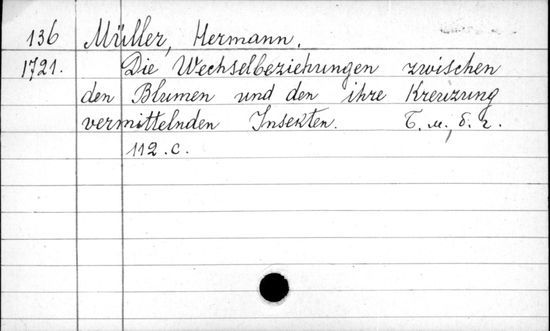 136 Müller, Hermann.
1721. Die Wechselbeziehungen zwischen
den Blumen und den ihre Kreuzung
vermittelnden Insekten. Б. м., б. г.
112. с.